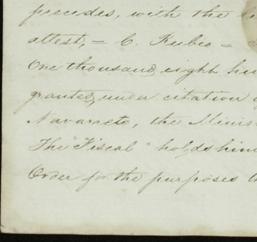 precedes, with the
attest, – C. Forbes –
One thousand, eight hun
grantes, une a citation
Navarreto, the Minis
The "Fiscal" holds him
Order for the purposes